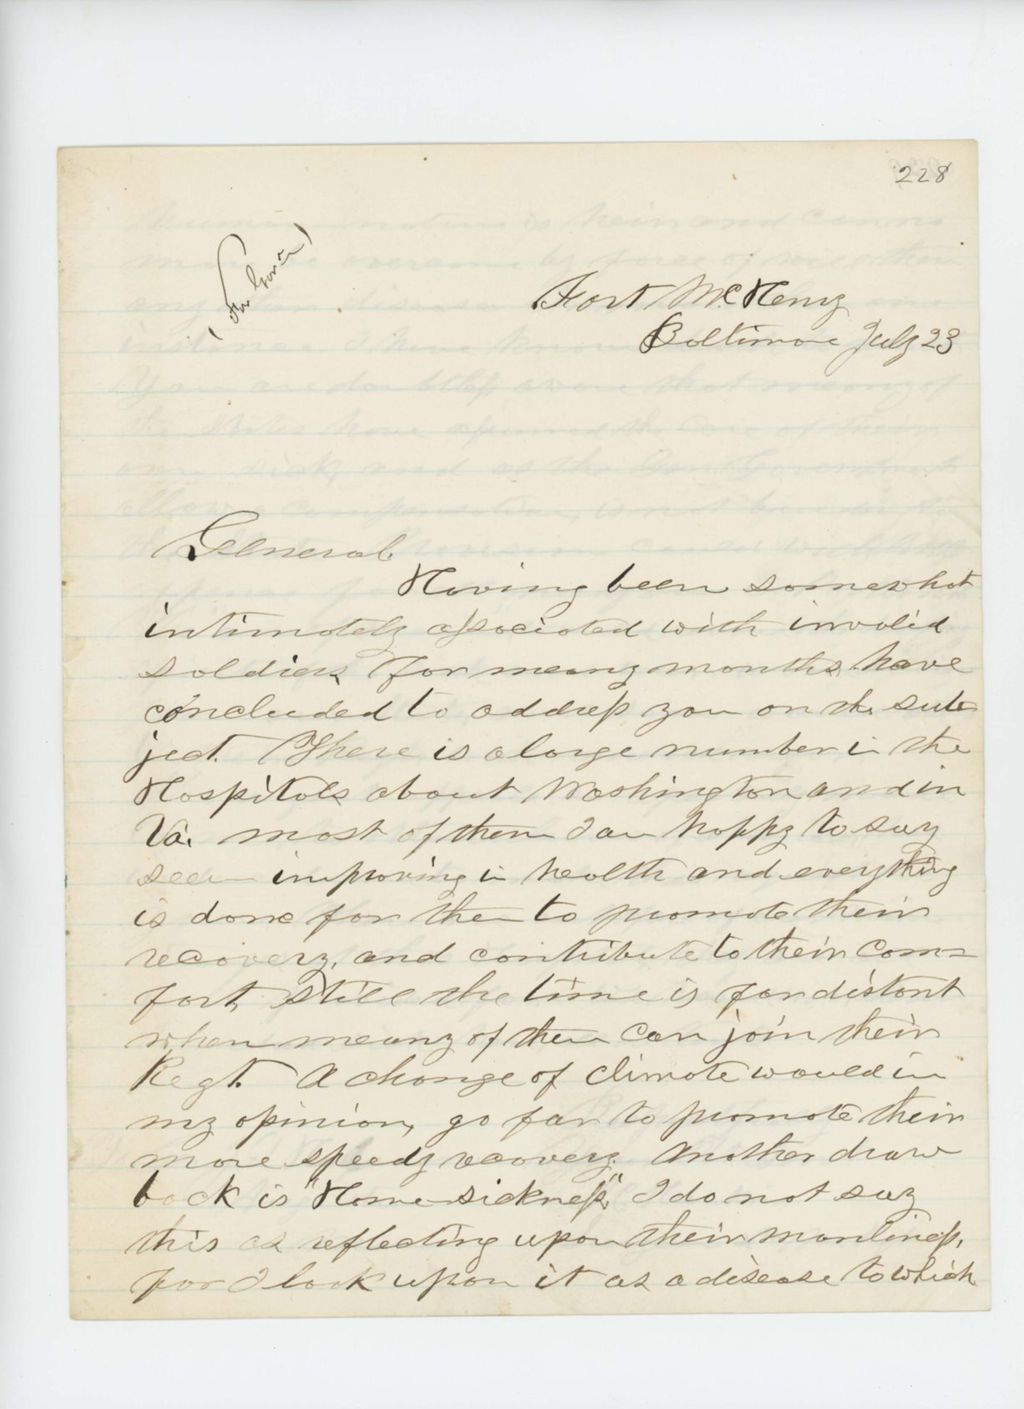 228
Fort McHenry
Baltimore July 23
General
Having been somewhat
intimately associated with invalid
soldiers for meany months have
concleeded to address you on the sub
ject. There is a large number in the
Hospitals about Washington and in
Va. most of them I am happy to say
seem improving in health and everything
is done for them to promote their
recovery, and contribute to their com=
fort, Still the time is far distant
when meany of them can join their
Regt. A change of climate would in
my opinion, go far to promote their
more speedy recovery. Another draw
back is "Homesickness," I do not say
this as reflecting upon their manliness,
for I look upon it as a disease to which